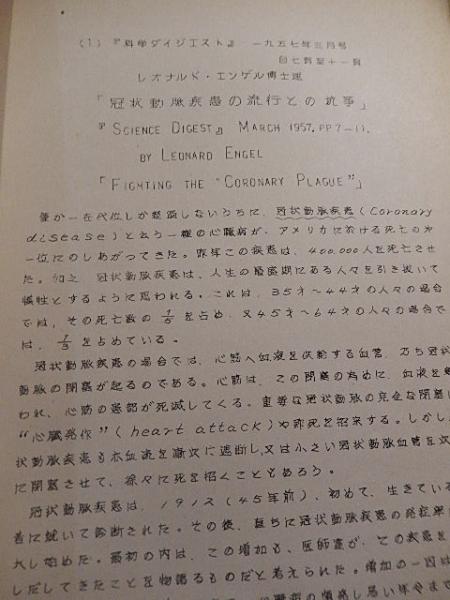 (1) 『科学ダイジェスト』 一九五七年三月号
自七頁至十一頁
レオナルド・エンゲル博士述
「冠状動脈疾患の流行との抗争」
『SCIENCE DIGEST』 MARCH 1957. PP 7-11.
BY LEONARD ENGEL
「FIGHTING THE "CORONARY PLAGUE"」
僅か一世代位しか経過しないうちに、冠状動脈疾患(Coronary
disease)と云う一種の心臓病が、アメリカに於ける死亡の
一位にのしあがってきた。昨年この疾患は、400,000人を死亡させ
た。加之、冠状動脈疾患は、人生の最盛期にある人々を引き抜いて
犠牲とするように思われる。これは、35才〜44才の人々の場合
では、その死亡数の 1/5 を占め、又45才〜64才の人々の場合で
は、1/3 を占めている。
冠状動脈疾患の場合では、心筋へ血液を供給する血管、乃ち冠状
動脈の閉塞が起るのである。心筋は、この閉塞のために、血液を奪
われ、心筋の患部が死滅してくる。重要な冠状動脈の完全な閉塞は
"心臓発作"(heart attack)や即死を招来する。しかし
状動脈疾患も亦血流を漸次に遮断し、又は小さい冠状動脈血管を次
に閉塞させて、徐々に死を招くこともあろう。
冠状動脈疾患は、1912(45年前)、初めて、生きている
者に就いて診断された。その後、直ちに冠状動脈疾患の発症率
大し始めた。最初の内は、この増加も、医師達が、この疾患を
しだしてきたことを物語るものだと考えられた。増加の一因は